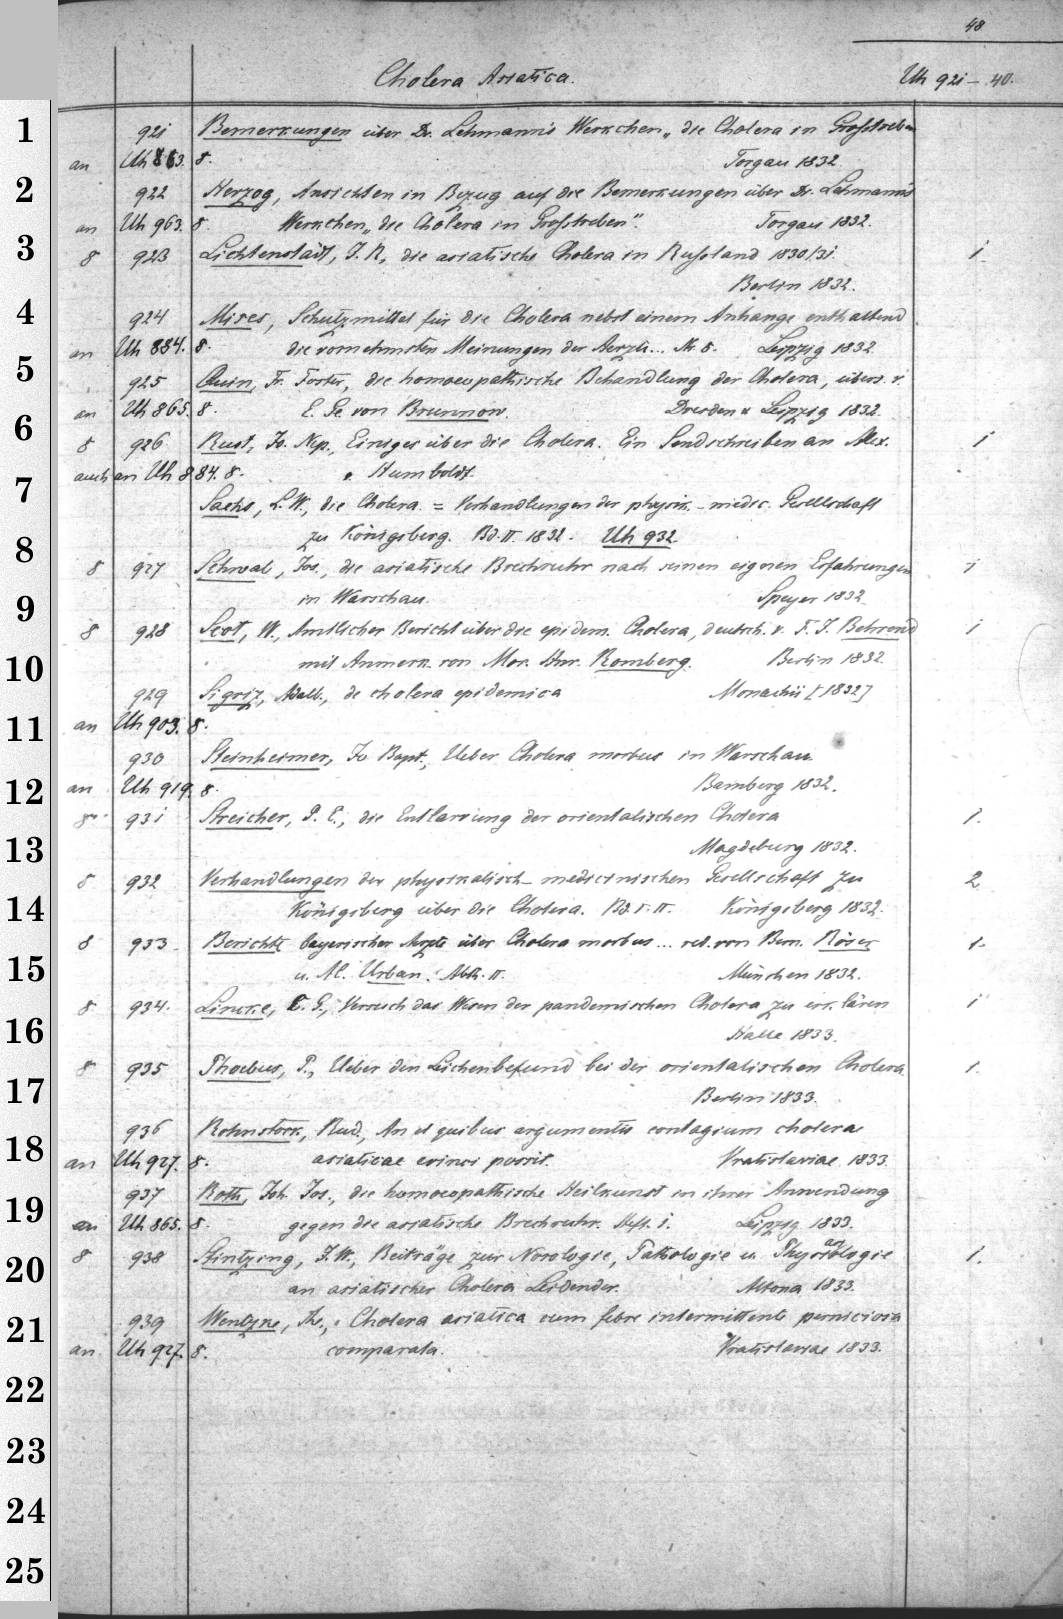 48
Cholera Asiatica. Uh 921-40.
1 921 Bemerkungen über Dr. Lehmann's Werkchen „die Cholera in Großtreben
an Uh 863. 8. Torgau 1832.
2 922 Herzog, Ansichten in Bezug auf die Bemerkungen über Dr. Lehmann's
an Uh 963. 8. Werkchen „die Cholera in Großtreben". Torgau 1832.
3 8 923 Lichtenstädt, J. R., die asiatische Cholera in Rußland 1830/31. 1.
Berlin 1832.
4 924 Mises, Schutzmittel für die Cholera nebst einem Anhange enthaltend
an Uh 884. 8. die vornehmsten Meinungen der Aerzte... Leipzig 1832
5 925 Quin, Fr. Foster, die homoeopathische Behandlung der Cholera, übers. v.
an Uh 865. 8. E. Ge. von Brunnow. Dresden u Leipzig 1832.
6 8 926 Rust, Jo. Nep., Einiges über die Cholera. Ein Sendschreiben an Alex. 1
auch an Uh 884. 8. v. Humboldt.
7 Sachs, L. W., die Cholera. = Verhandlungen der physik.-medic. Gesellschaft
zu Königsberg. Bd. II. 1832. Uh 932.
8 8 927 Schwab, Jos., die asiatische Brechruhr nach seinen eigenen Erfahrungen 1
9 in Warschau. Speyer 1832.
8 928 Scot, W., Amtlicher Bericht über die epidem. Cholera, deutsch. v. F. J. Behrend 1
10 mit Anmerk. von Mor. Hnr. Romberg. Berlin 1832.
929 Sigriz, Adalb., de cholera epidemica Monachii [1832]
11 an Uh 903. 8.
930 Steinheimer, Jo Bapt., Ueber Cholera morbus in Warschau.
12 an Uh 919. 8. Bamberg 1832.
8. 931 Streicher, P. C., die Entlarvung der orientalischen Cholera 1.
13 Magdeburg 1832.
8 932 Verhandlungen der physikalisch-medicinischen Gesellschaft zu 2
14 Königsberg über die Cholera. Bd. I. II. Königsberg 1832.
8 933 Berichte bayerischer Aerzte über Cholera morbus... red. von Bern. Röser 1.
15 u. Al. Urban. Abth. II. München 1832.
8 934. Lincke, C. G., Versuch das Wesen der pandemischen Cholera zu erklären 1
16 Halle 1833.
8 935 Phoebus, P., Ueber den Leichenbefund bei der orientalischen Cholera. 1.
17 Berlin 1833.
936 Rohnstock, Rud., An et quibus argumentis contagium cholerae
18 an Uh 927. 8. asiaticae evinci possit. Vratislaviae 1833.
937 Roth, Joh. Jos., die homoeopathische Heilkunst in ihrer Anwendung
19 an Uh 865. 8. gegen die asiatische Brechruhr. Heft. 1. Leipzig 1833.
20 8 938 Stintzing, J. W., Beiträge zur Nosologie, Pathologie u. Physiologie 1.
an asiatischer Cholera Leidender. Altona 1833.
21 939 Wentzke, Th., Cholera asiatica cum febre intermittente perniciosa
an Uh 927. 8. comparata. Vratislaviae 1833.
22
23
24
25